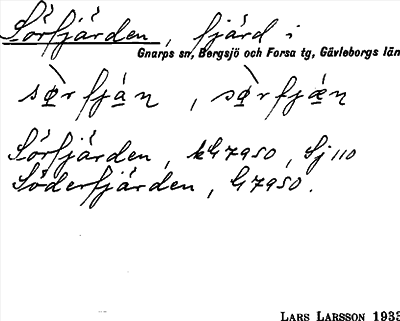 Sörfjärden, fjärd i
Gnarps sn, Bergsjö och Forsa tg, Gävleborgs län
sø̀r fjá̠ɳ, sø̀rfjǽɳ
Sörfjärden, kG7950, Sj110
Söderfjärden, G7950.
LARS LARSSON 1933